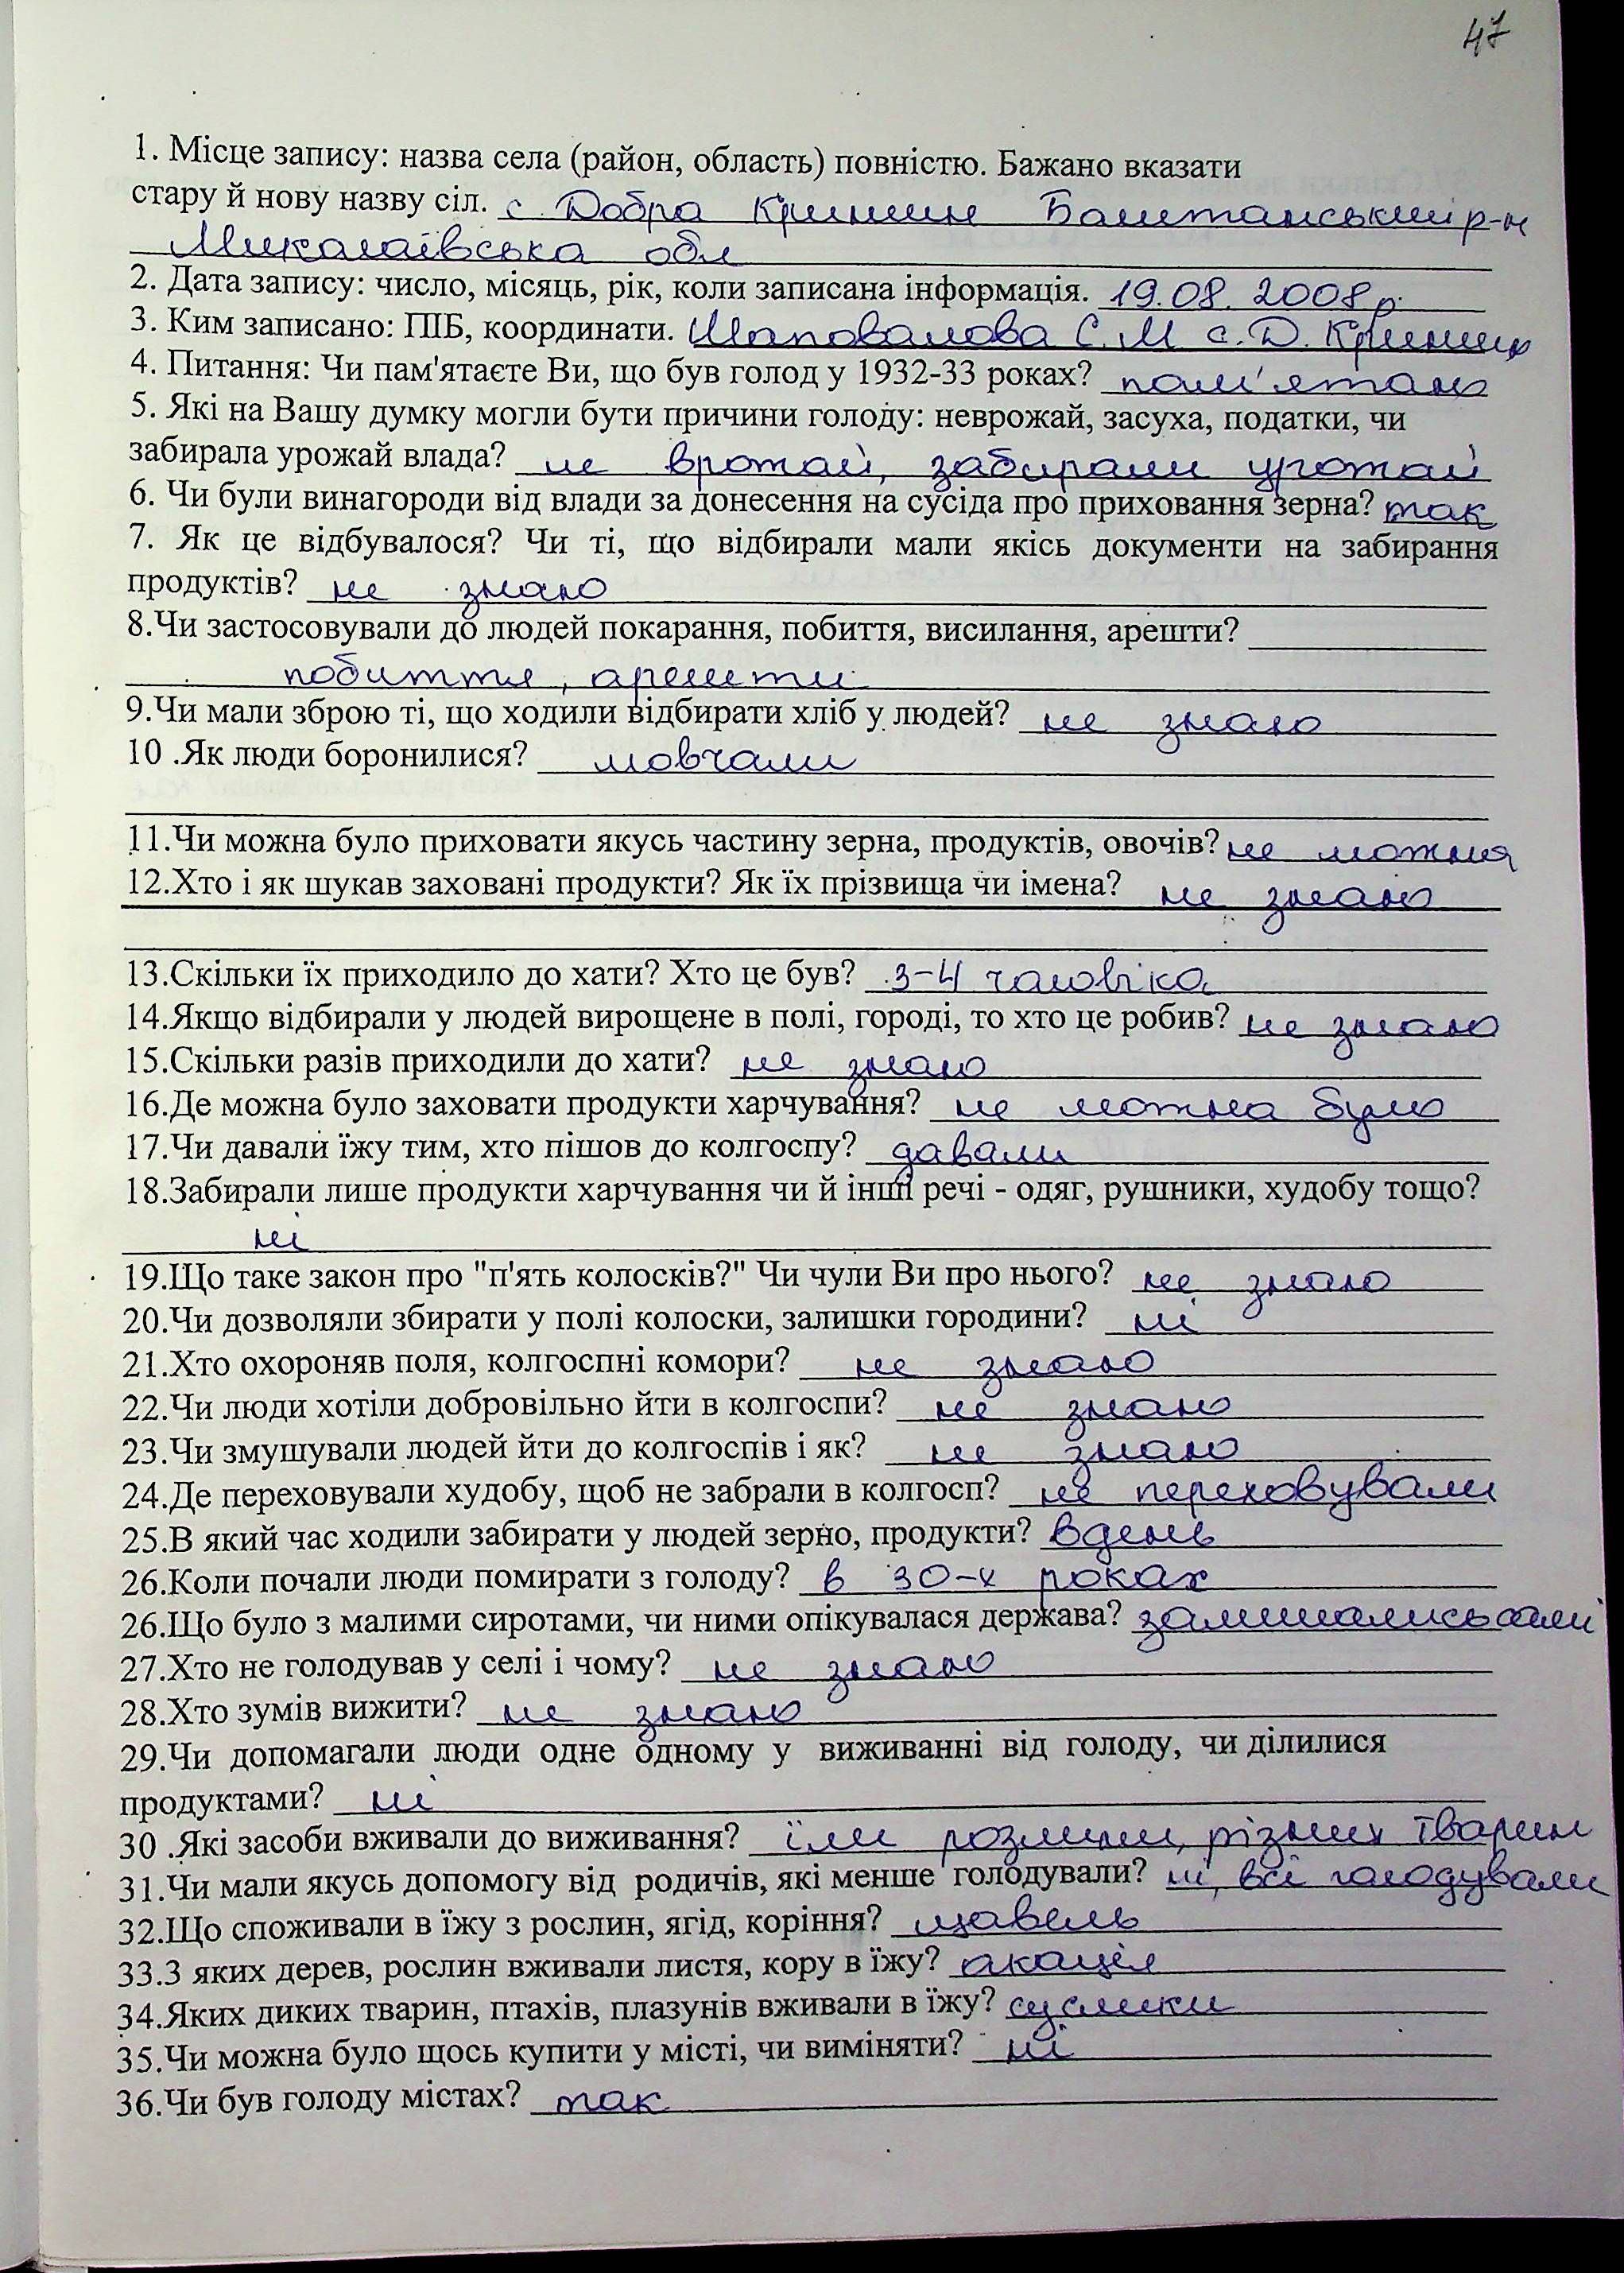 47
1. Місце запису: назва села (район, область) повністю. Бажано вказати
стару й нову назву сіл. с. Добра Криниця Баштанський р-н
Миколаївська обл
2. Дата запису: число, місяць, рік, коли записана інформація. 19.08.2008р.
3. Ким записано: ПІБ, координати. Шаповалова С.М с.Д. Криниця
4. Питання: Чи пам'ятаєте Ви, що був голод у 1932-33 роках? пам'ятаю
5. Які на Вашу думку могли бути причини голоду: неврожай, засуха, податки, чи
забирала урожай влада? не врожай, забирали урожай
6. Чи були винагороди від влади за донесення на сусіда про приховання зерна? так
7. Як це відбувалося? Чи ті, що відбирали мали якісь документи на забирання
продуктів? не знаю
8.Чи застосовували до людей покарання, побиття, висилання, арешти?
побиття, арешти
9.Чи мали зброю ті, що ходили відбирати хліб у людей? не знаю
10 .Як люди боронилися? мовчали
11.Чи можна було приховати якусь частину зерна, продуктів, овочів? не можна
12.Хто і як шукав заховані продукти? Як їх прізвища чи імена? не знаю
13.Скільки їх приходило до хати? Хто це був? 3-4 чаловіка
14.Якщо відбирали у людей вирощене в полі, городі, то хто це робив? не знаю
15.Скільки разів приходили до хати? не знаю
16.Де можна було заховати продукти харчування? не можна було
17.Чи давали їжу тим, хто пішов до колгоспу? давали
18.Забирали лише продукти харчування чи й інші речі - одяг, рушники, худобу тощо?
ні
19.Що таке закон про "п'ять колосків?" Чи чули Ви про нього? не знаю
20.Чи дозволяли збирати у полі колоски, залишки городини? ні
21.Хто охороняв поля, колгоспні комори? не знаю
22.Чи люди хотіли добровільно йти в колгоспи? не знаю
23.Чи змушували людей йти до колгоспів і як? не знаю
24.Де переховували худобу, щоб не забрали в колгосп? не переховували
25.В який час ходили забирати у людей зерно, продукти? вдень
26.Коли почали люди помирати з голоду? в 30-х роках
26.Що було з малими сиротами, чи ними опікувалася держава? залишались самі
27.Хто не голодував у селі і чому? не знаю
28.Хто зумів вижити? не знаю
29.Чи допомагали люди одне одному у виживанні від голоду, чи ділилися
продуктами? ні
30 .Які засоби вживали до виживання? їли розлини, різних тварин
31.Чи мали якусь допомогу від родичів, які менше голодували? ні, всі голодували
32.Що споживали в їжу з рослин, ягід, коріння? щавель
33.З яких дерев, рослин вживали листя, кору в їжу? акація
34.Яких диких тварин, птахів, плазунів вживали в їжу? суслики
35.Чи можна було щось купити у місті, чи виміняти? ні
36.Чи був голоду містах? так